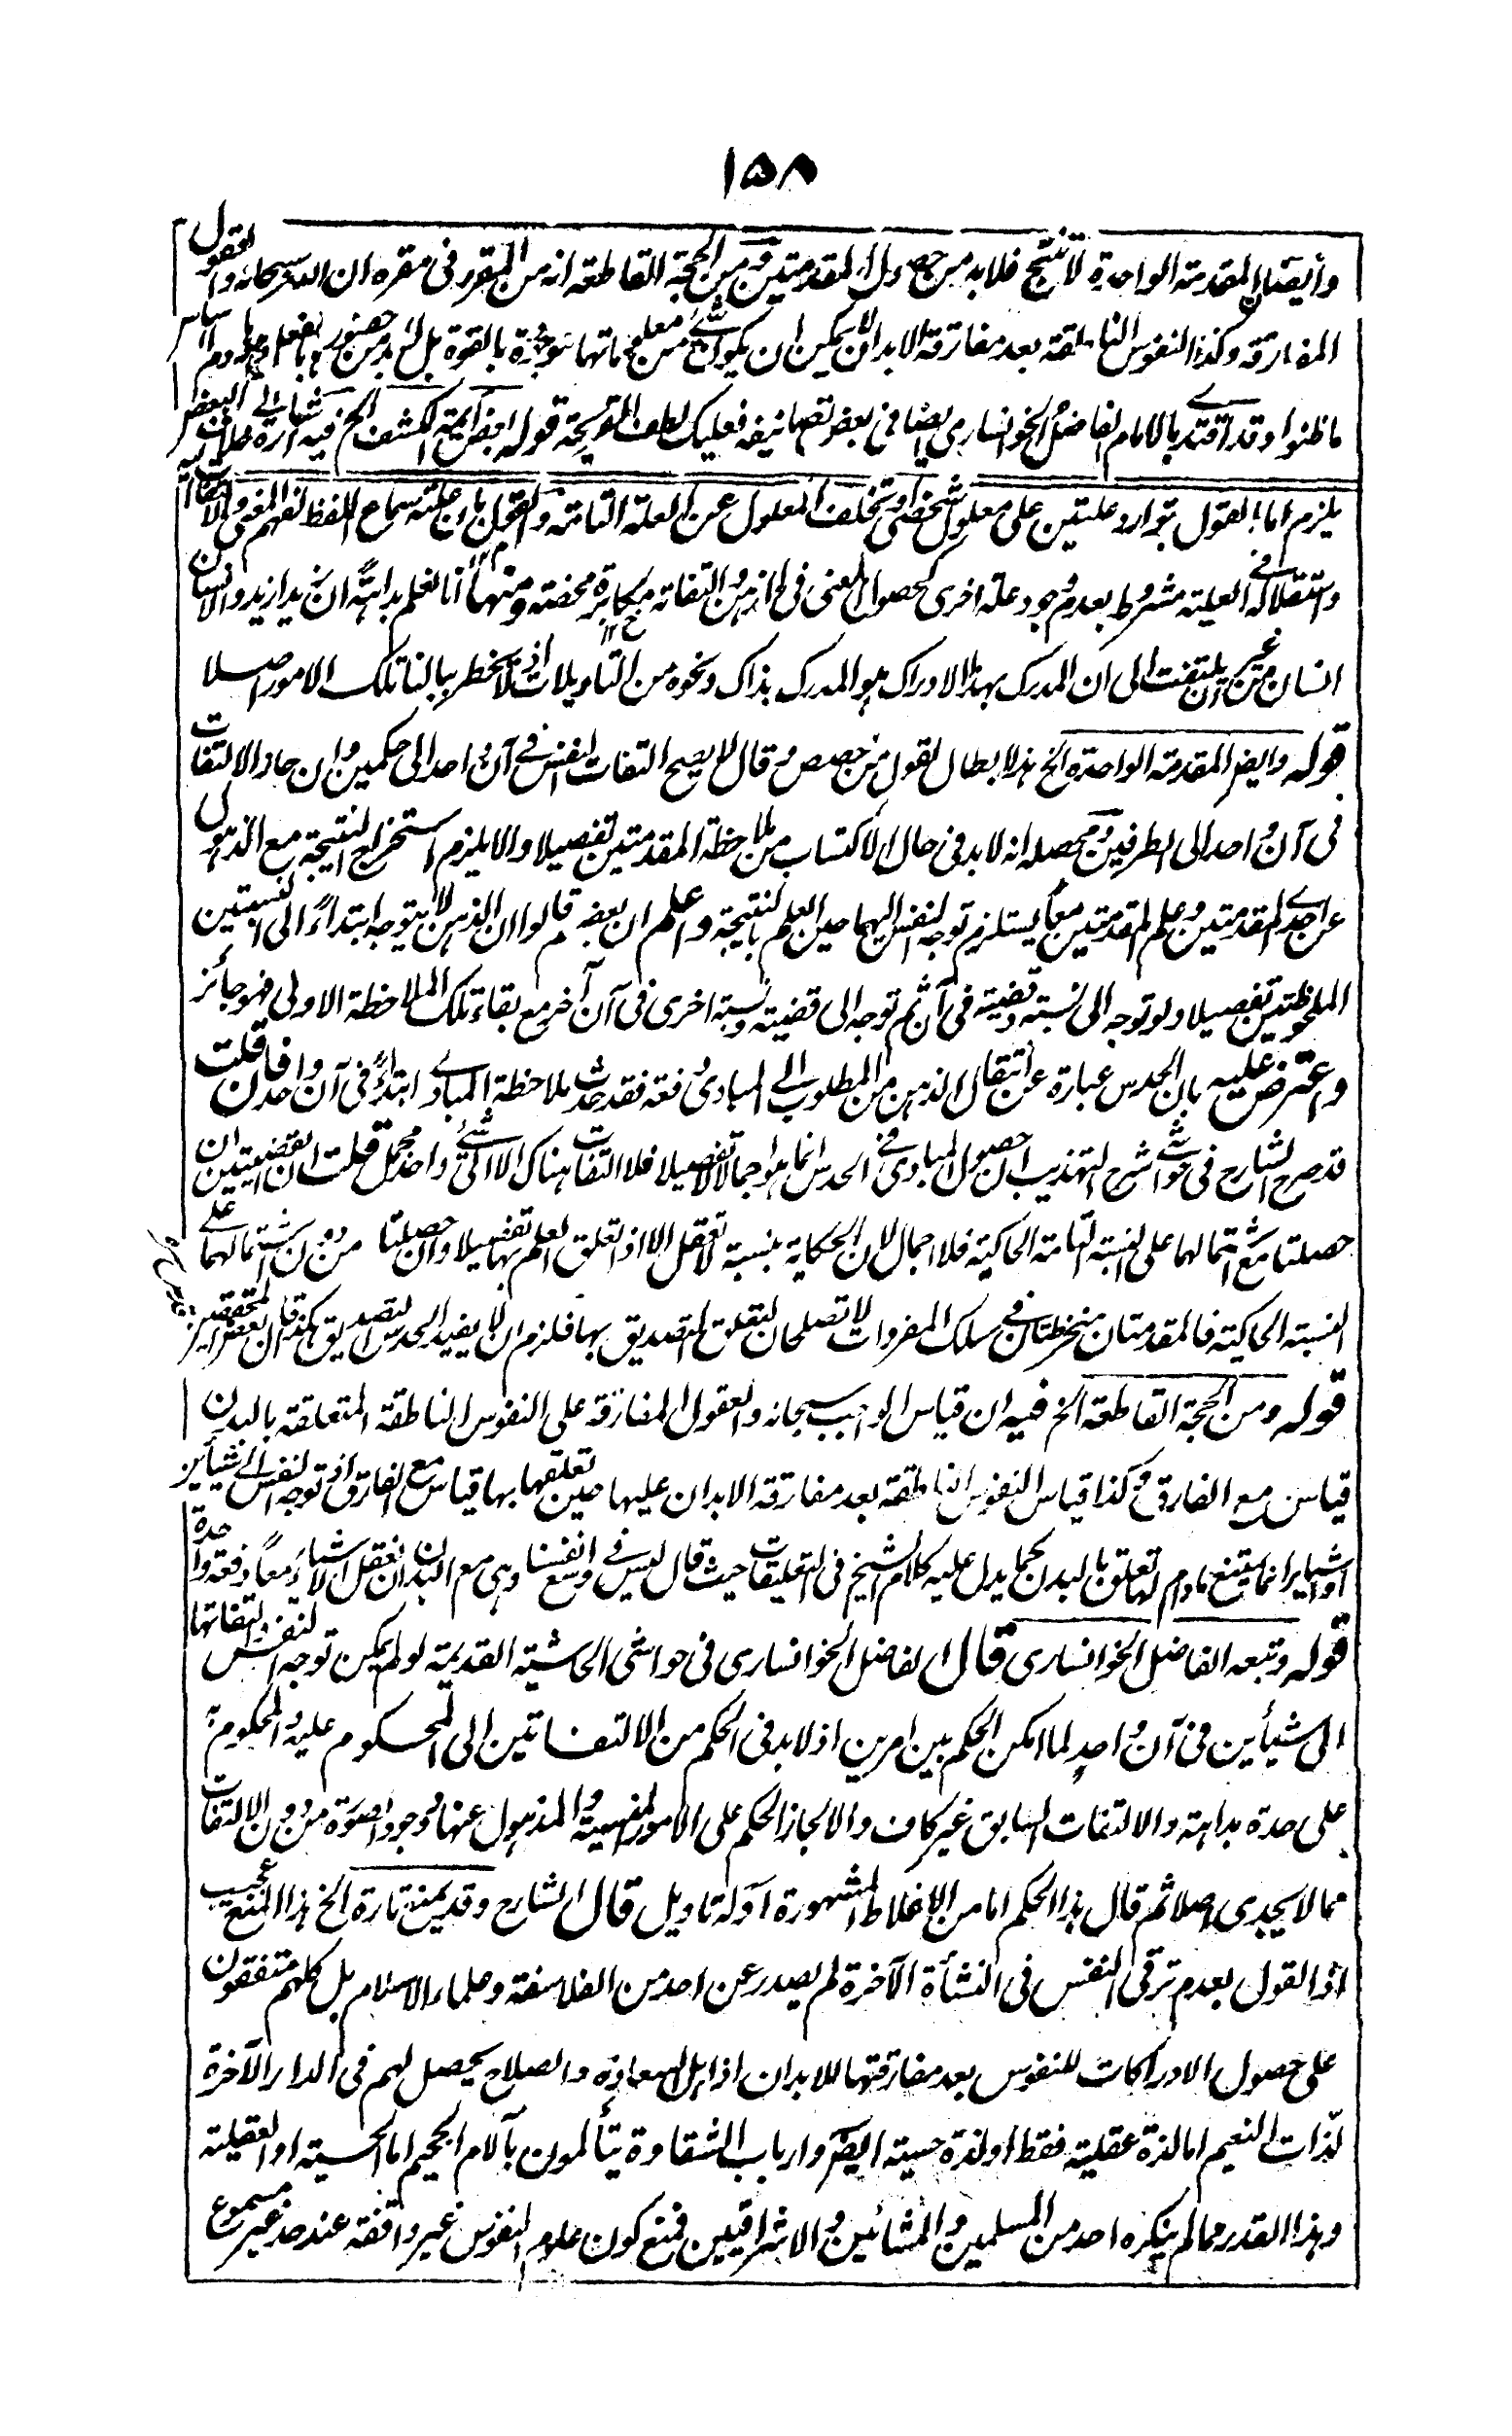 ١٥٨
وأيضا المقدمة الواحدة لا تنتج فلا بد من حصول المقدمتين ومن الحجة القاطعة انه من المتقرر في مقره ان الله سبحانه والعقول
المفارقة وكذا النفوس الناطقة بعد مفارقة الابدان لا يمكن ان يكون شيء من معلوماتها موجودة بالقوة بل لا بد من حضورها بالفعل
ما ظنوا وقد اقتدى بالامام الفاضل الخوانساري ايضا في بعض تصانيفه فعليك بلطف القريحة قوله بعض ائمة الكشف الخ فيه اشارة الى
يلزم اما القول بتوارد علتين على معلول شخصي او تخلف المعلول عن العلة التامة والقول بان علية سماع اللفظ لفهم المعنى والالتفات اليه
واستقلاله في العلية مشروط بعدم وجود علة اخرى لحصول المعنى في الذهن والتفاته مكابرة محضة ومنها انا نعلم بداهة ان زيدا زيد والانسان
انسان من غير ان يلتفت الى ان المدرك بهذا الادراك هو المدرك بذاك ونحوه من التاويلات اذ لا يخطر ببالنا تلك الامور اصلا
قوله وايضا المقدمة الواحدة الخ هذا ابطال لقول من خصص وقال لا يصح التفات النفس في آن واحد الى حكمين وان جاز الالتفات
في آن واحد الى الطرفين ومحصله انه لا بد في حال الاكتساب من ملاحظة المقدمتين تفصيلا والا يلزم استخراج النتيجة مع الذهول
عن احدى المقدمتين وعلم المقدمتين معا يستلزم توجه النفس اليهما حين العلم بالنتيجة واعلم ان بعضهم قالوا ان الذهن لا يتوجه ابتداء الى النسبتين
الملحوظتين تفصيلا ولو توجه الى نسبة وقضية في آن ثم توجه الى قضية ونسبة اخرى في آن آخر مع بقاء تلك الملاحظة الاولى فهو جائز
واعترض عليه بان الحدس عبارة عن انتقال الذهن من المطلوب الى المبادي دفعة فقد حدث ملاحظة المبادي ابتداء في آن واحد فان قلت
قد صرح الشارح في حواشي شرح التهذيب ان حصول المبادي في الحدس انما هو اجمالا لا تفصيلا فلا التفات هناك الا الى شيء واحد مجمل قلت ان القضيتين ان
حصلتا مع اشتمالهما على النسبة التامة الحاكية فلا اجمال لان الحكاية بنسبة لا تعقل الا اذا تعلق العلم بها تفصيلا وان حصلتا من دون اشتمالهما على
النسبة الحاكية فالمقدمتان منخرطتان في سلك المفردات لا تصلحان لتعلق التصديق بها فلزم ان لا يفيد الحدس التصديق هكذا قال بعض المحققين
قوله ومن الحجة القاطعة الخ فيه ان قياس الواجب سبحانه والعقول المفارقة على النفوس الناطقة المتعلقة بالبدن
قياس مع الفارق وكذا قياس النفوس الناطقة بعد مفارقة الابدان عليها حين تعلقها بها قياس مع الفارق اذ توجه النفس الى شيئين
او اشياء انما يمتنع ما دام لها تعلق بالبدن كما يدل عليه كلام الشيخ في التعليقات حيث قال ليس في وسع انفسنا وهي مع البدن ان تعقل الاشياء معا دفعة واحدة
قوله وتبعه الفاضل الخوانساري قال الفاضل الخوانساري في حواشي الحاشية القديمة لو لم يمكن توجه النفس والتفاتها
الى شيأين في آن واحد لما امكن الحكم بين امرين اذ لا بد في الحكم من الالتفاتين الى المحكوم عليه والمحكوم به
على حدة بداهة والالتفات السابق غير كاف والا لجاز الحكم على الامور المنسية والمذهول عنها ووجود الصورة من دون الالتفات
مما لا يجدي اصلا ثم قال هذا الحكم اما من الاغلاط المشهورة او له تاويل قال الشارح وقد يمنع تارة الخ هذا المنع عجيب
اذ القول بعدم ترقي النفس في النشأة الآخرة لم يصدر عن احد من الفلاسفة وعلماء الاسلام بل كلهم متفقون
على حصول الادراكات للنفوس بعد مفارقتها للابدان اذ اهل السعادة والصلاح يحصل لهم في الدار الآخرة
لذات النعيم اما لذة عقلية فقط او لذة حسية ايضا وارباب الشقاوة يتألمون بآلام الجحيم اما الحسية او العقلية
وهذا القدر مما لم ينكره احد من المسلمين والمشائين والاشراقيين فمنع كون علوم النفوس غير واقفة عند حد غير مسموع